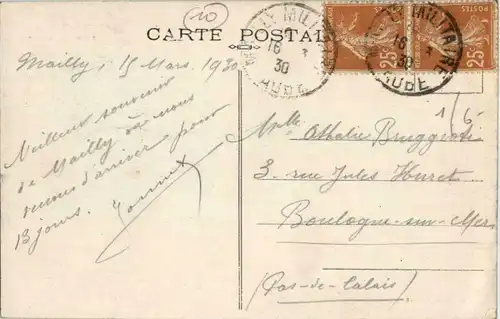 10
CARTE POSTALE
MAILLY MILITAIRE
16 - 3
30
AUBE
POSTES
25c
MAILLY MILITAIRE
16 - 3
30
AUBE
POSTES
25c
Mailly, 15 Mars 1930
1/6
Meilleur souvenir
de Mailly où nous
venons d'arriver pour
13 jours.
Mlle Athalie
3, rue Jules Huret
Boulogne-sur-Mer
(Pas-de-Calais)